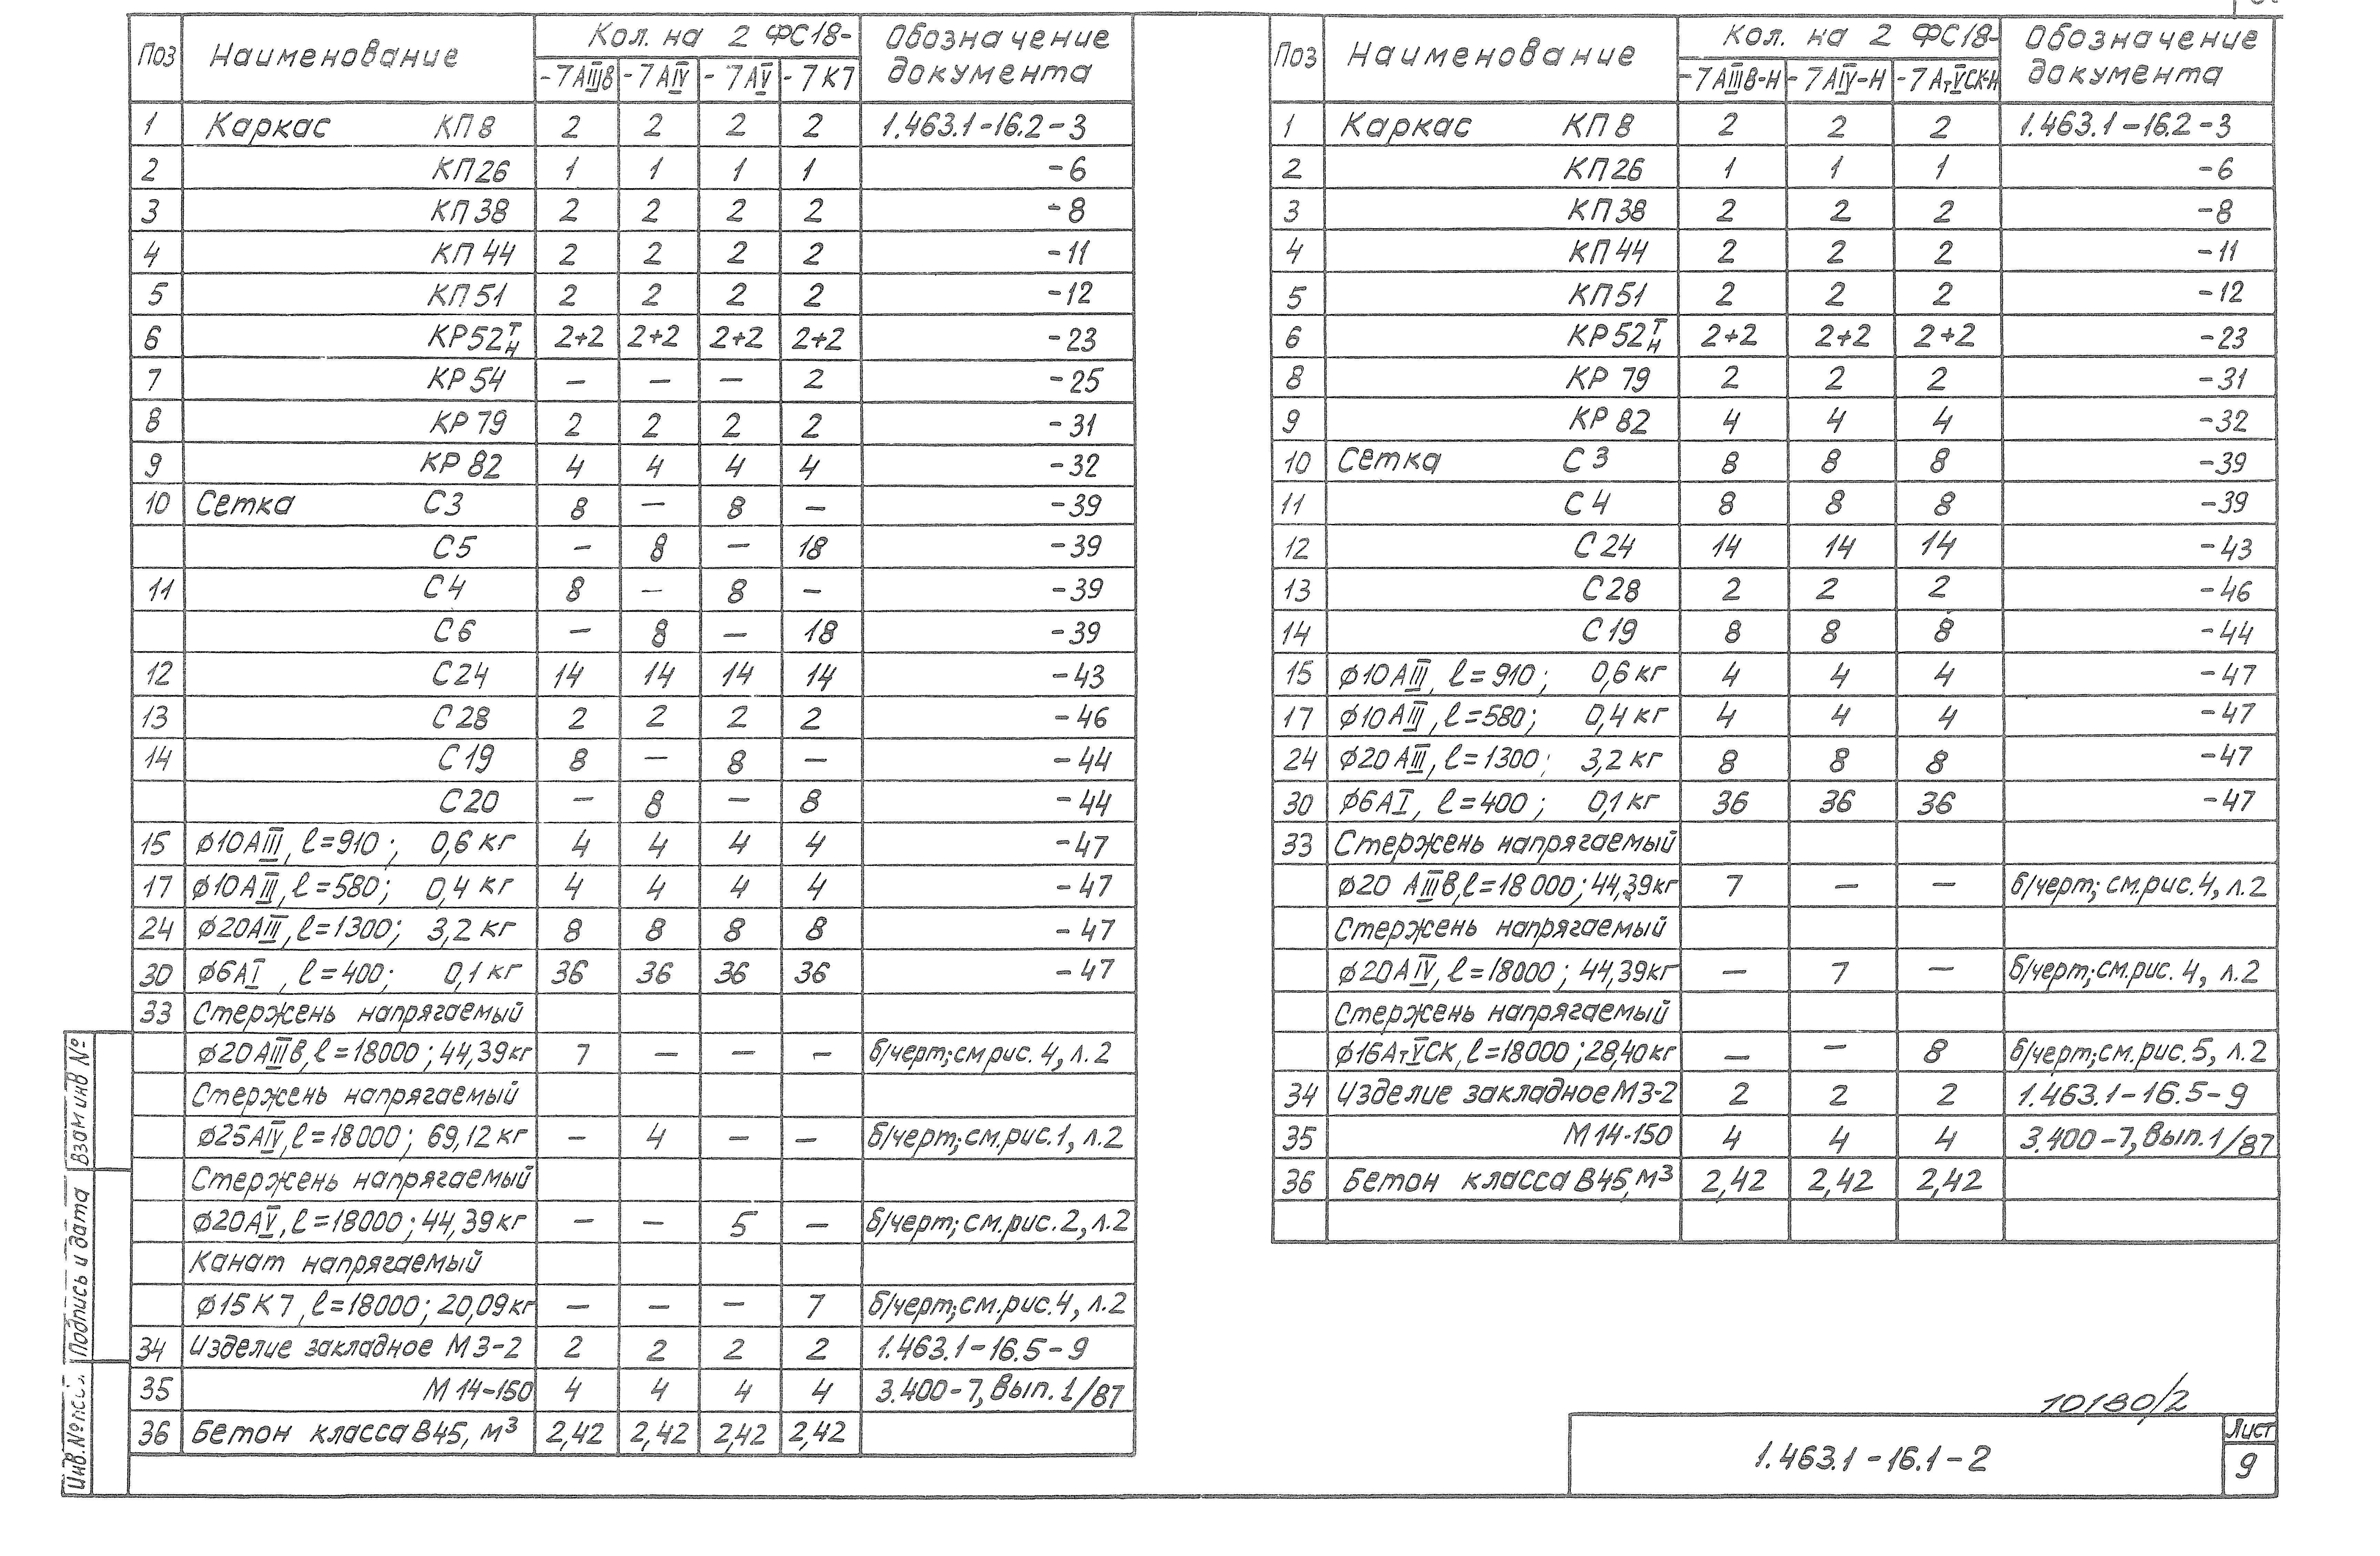 Поз Наименование Кол. на 2 ФС18- Обозначение документа
-7АIIIВ -7АIV -7АV -7К7
1 Каркас КП8 2 2 2 2 1.463.1-16.2-3
2 КП26 1 1 1 1 -6
3 КП38 2 2 2 2 -8
4 КП44 2 2 2 2 -11
5 КП51 2 2 2 2 -12
6 КР52Т/Н 2+2 2+2 2+2 2+2 -23
7 КР54 — — — 2 -25
8 КР79 2 2 2 2 -31
9 КР82 4 4 4 4 -32
10 Сетка С3 8 — 8 — -39
С5 — 8 — 18 -39
11 С4 8 — 8 — -39
С6 — 8 — 18 -39
12 С24 14 14 14 14 -43
13 С28 2 2 2 2 -46
14 С19 8 — 8 — -44
С20 — 8 — 8 -44
15 ϕ10АIII, ℓ=910; 0,6кг 4 4 4 4 -47
17 ϕ10АIII, ℓ=580; 0,4кг 4 4 4 4 -47
24 ϕ20АIII, ℓ=1300; 3,2кг 8 8 8 8 -47
30 ϕ6АI, ℓ=400; 0,1кг 36 36 36 36 -47
33 Стержень напрягаемый
ϕ20АIIIВ, ℓ=18000; 44,39кг 7 — — — б/черт; см рис. 4, л.2
Стержень напрягаемый
ϕ25АIV, ℓ=18000; 69,12кг — 4 — — б/черт; см.рис.1, л.2
Стержень напрягаемый
ϕ20АV, ℓ=18000; 44,39кг — — 5 — б/черт; см.рис.2, л.2
Канат напрягаемый
ϕ15К7, ℓ=18000; 20,09кг — — — 7 б/черт; см.рис.4, л.2
34 Изделие закладное М3-2 2 2 2 2 1.463.1-16.5-9
35 М14-150 4 4 4 4 3.400-7, Вып.1/87
36 Бетон класса В45, м³ 2,42 2,42 2,42 2,42
Поз Наименование Кол. на 2 ФС18- Обозначение документа
-7АIIIВ-Н -7АIV-Н -7АтVСК-Н
1 Каркас КП8 2 2 2 1.463.1-16.2-3
2 КП26 1 1 1 -6
3 КП38 2 2 2 -8
4 КП44 2 2 2 -11
5 КП51 2 2 2 -12
6 КР52Т/Н 2+2 2+2 2+2 -23
8 КР79 2 2 2 -31
9 КР82 4 4 4 -32
10 Сетка С3 8 8 8 -39
11 С4 8 8 8 -39
12 С24 14 14 14 -43
13 С28 2 2 2 -46
14 С19 8 8 8 -44
15 ϕ10АIII, ℓ=910; 0,6кг 4 4 4 -47
17 ϕ10АIII, ℓ=580; 0,4кг 4 4 4 -47
24 ϕ20АIII, ℓ=1300; 3,2кг 8 8 8 -47
30 ϕ6АI, ℓ=400; 0,1кг 36 36 36 -47
33 Стержень напрягаемый
ϕ20 АIIIВ, ℓ=18000; 44,39кг 7 — — б/черт; см.рис.4, л.2
Стержень напрягаемый
ϕ20АIV, ℓ=18000; 44,39кг — 7 — б/черт; см.рис. 4, л.2
Стержень напрягаемый
ϕ16АтVСК, ℓ=18000; 28,40кг — — 8 б/черт; см.рис.5, л.2
34 Изделие закладное М3-2 2 2 2 1.463.1-16.5-9
35 М14-150 4 4 4 3.400-7, Вып.1/87
36 Бетон класса В45, м³ 2,42 2,42 2,42
10180/2
1.463.1-16.1-2
Лист
9
Взам инв №
Подпись и дата
Инв.№ подл.